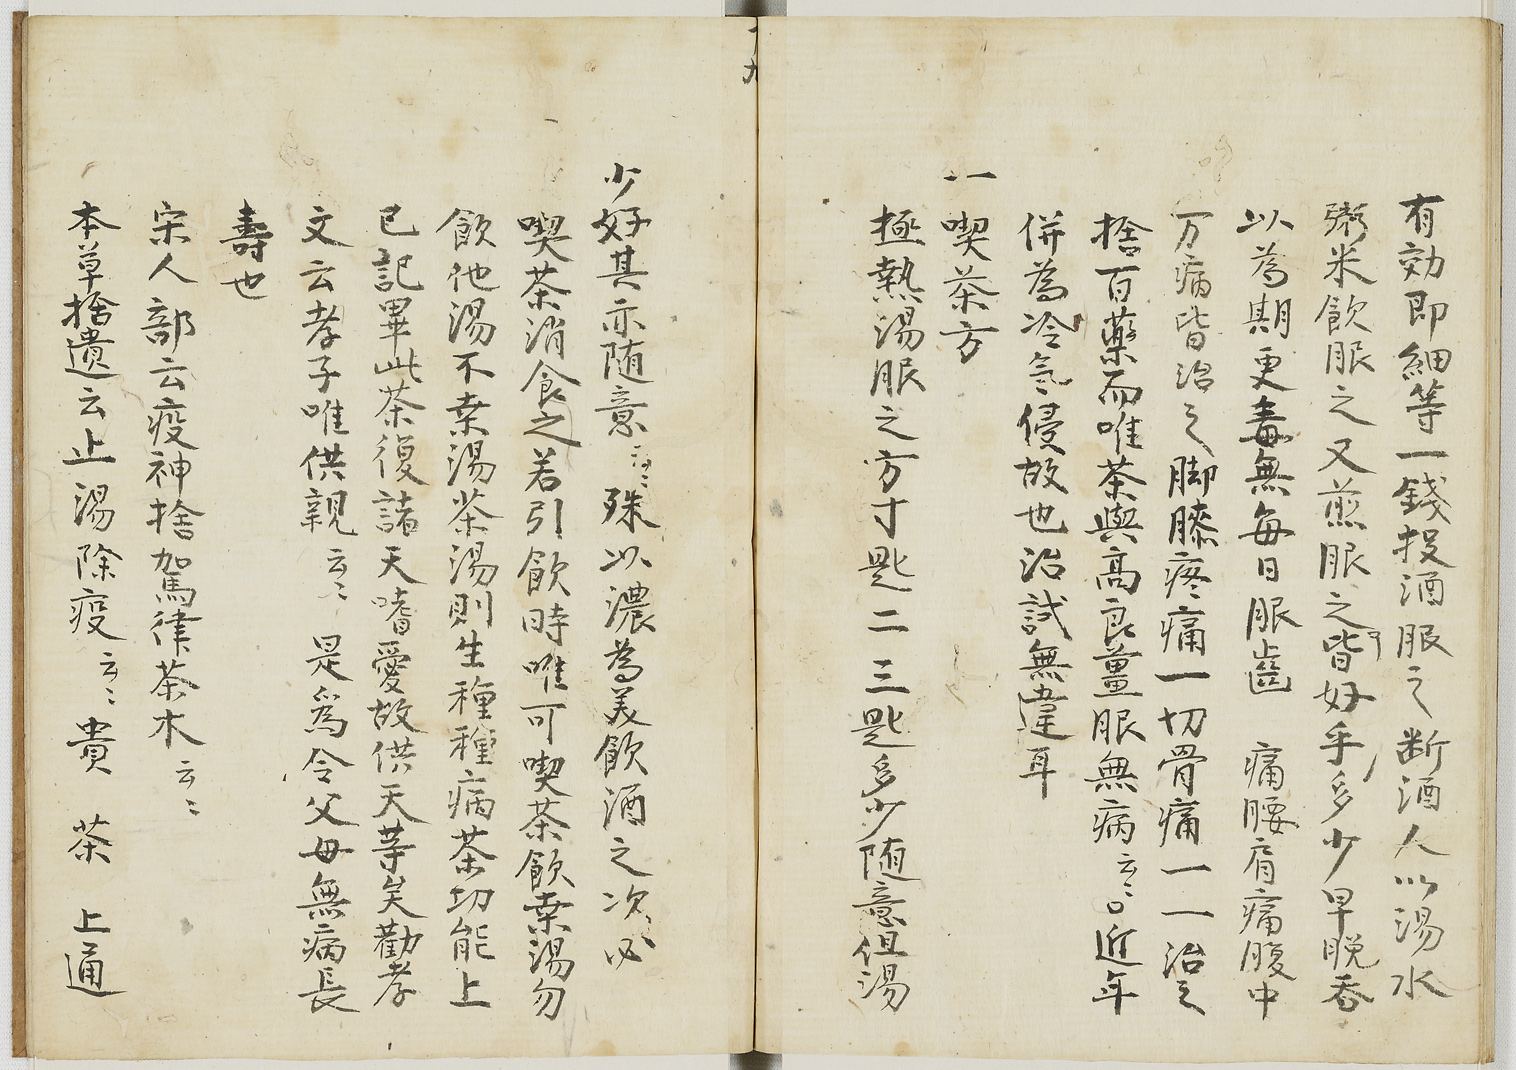 有効即細等一錢投酒服之断酒人以湯水
粥米飲服之又煎服之皆好乎多少早晩呑
以為期更毒無毎日服齒 痛腰肩痛腹中
万病皆治之脚膝疼痛一切骨痛一一治之
捨百藥而唯茶與高良薑服無病云々近年
併為冷氣侵故也治試無違耳
一喫茶方
極熱湯服之方寸匙二三匙多少随意但湯
少好其亦随意云々殊以濃為美飲酒之次必
喫茶消食之若引飲時唯可喫茶飲桒湯勿
飲他湯不桒湯茶湯則生種種病茶功能上
已記畢此茶復諸天嗜愛故供天等矣勸孝
文云孝子唯供親云々 是為令父母無病長
壽也
宋人部云疫神捨駕律茶木云々
本草捨遺云止湯除疫云々貴 茶 上通